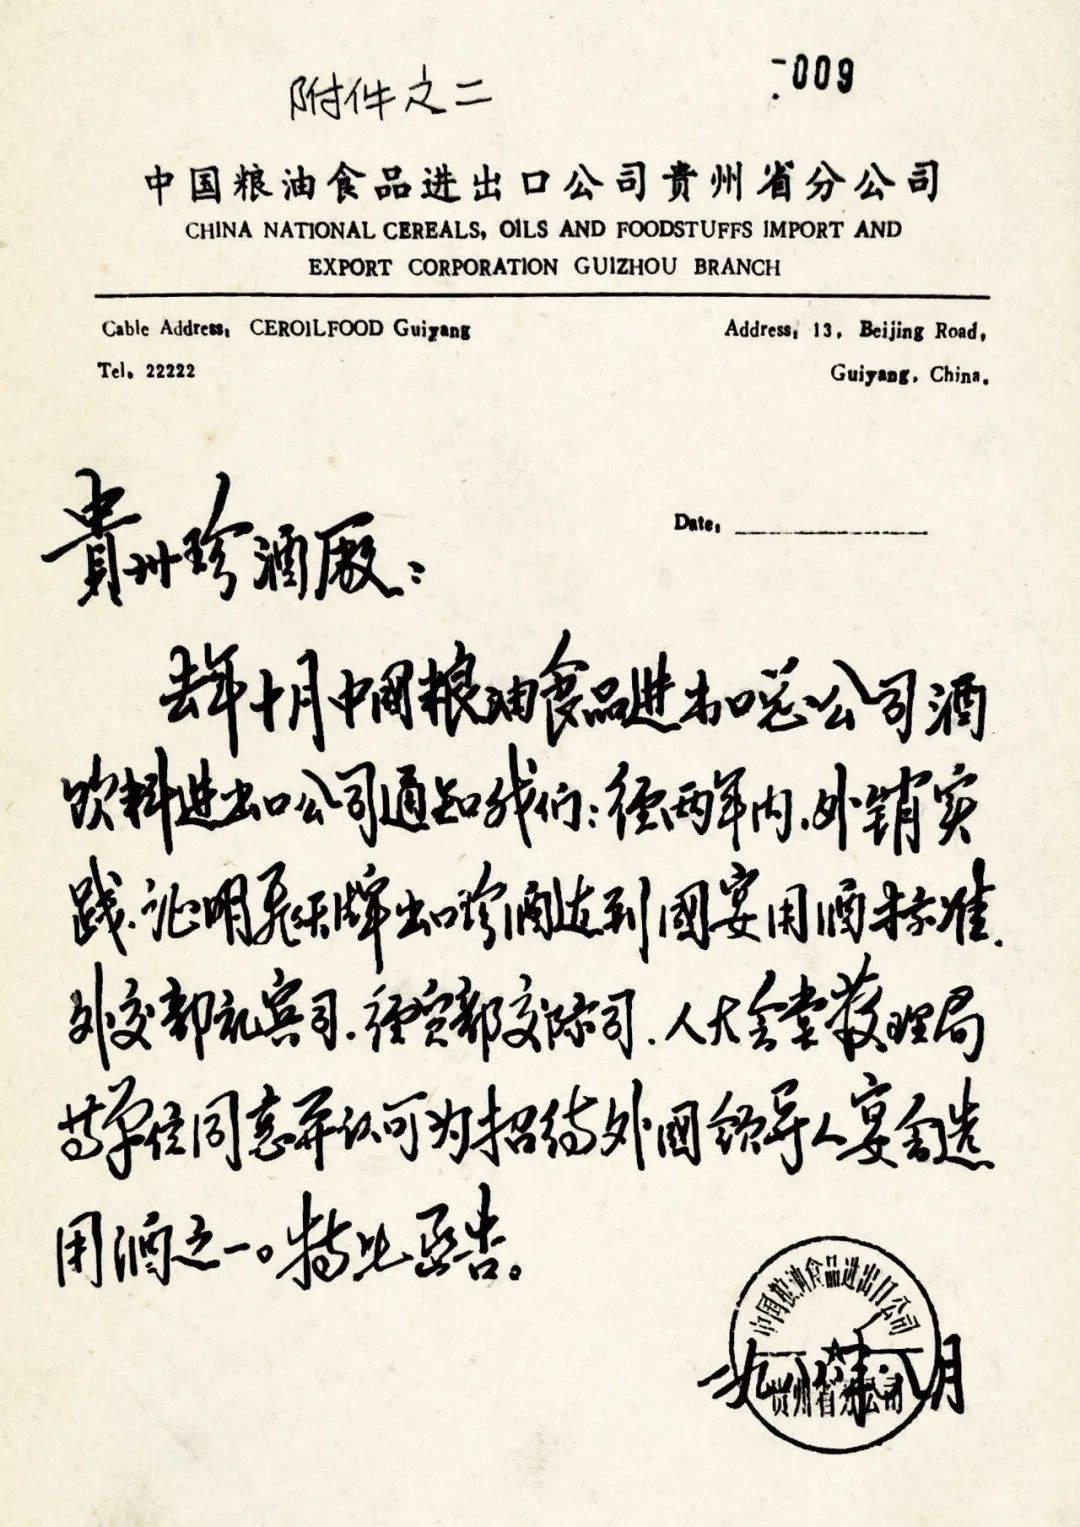 -009
附件之二
中国粮油食品进出口公司贵州省分公司
CHINA NATIONAL CEREALS, OILS AND FOODSTUFFS IMPORT AND
EXPORT CORPORATION GUIZHOU BRANCH
Cable Address: CEROILFOOD Guiyang
Address: 13, Beijing Road,
Tel. 22222
Guiyang, China.
Date:
貴州珍酒厰：
去年十月中國粮油食品进出口总公司酒
饮料进出口公司通知我们：经两年内、外销实
践、证明飞天牌出口珍酒达到國宴用酒标准。
外交部礼宾司、经贸部交际司、人大会堂管理局
等单位同意并认可为招待外國领导人宴会选
用酒之一。特此函告。
中国粮油食品进出口公司
贵州省分公司
一九八八年八月